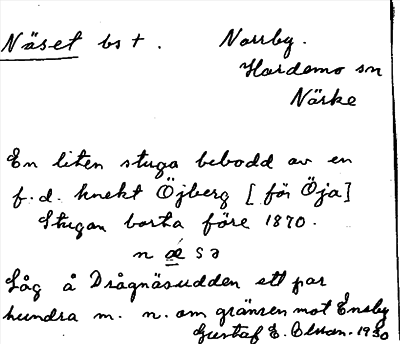 Näset bs + . Norrby.
Hardemo sn
Närke
En liten stuga bebodd av en
f. d. knekt Öjberg [ för Öja]
Stugan borta före 1870.
n ǽ s ə
Låg å Drågnäsudden ett par
hundra m. n. om gränsen mot Ensby
Gustaf E. Olsson. 1930